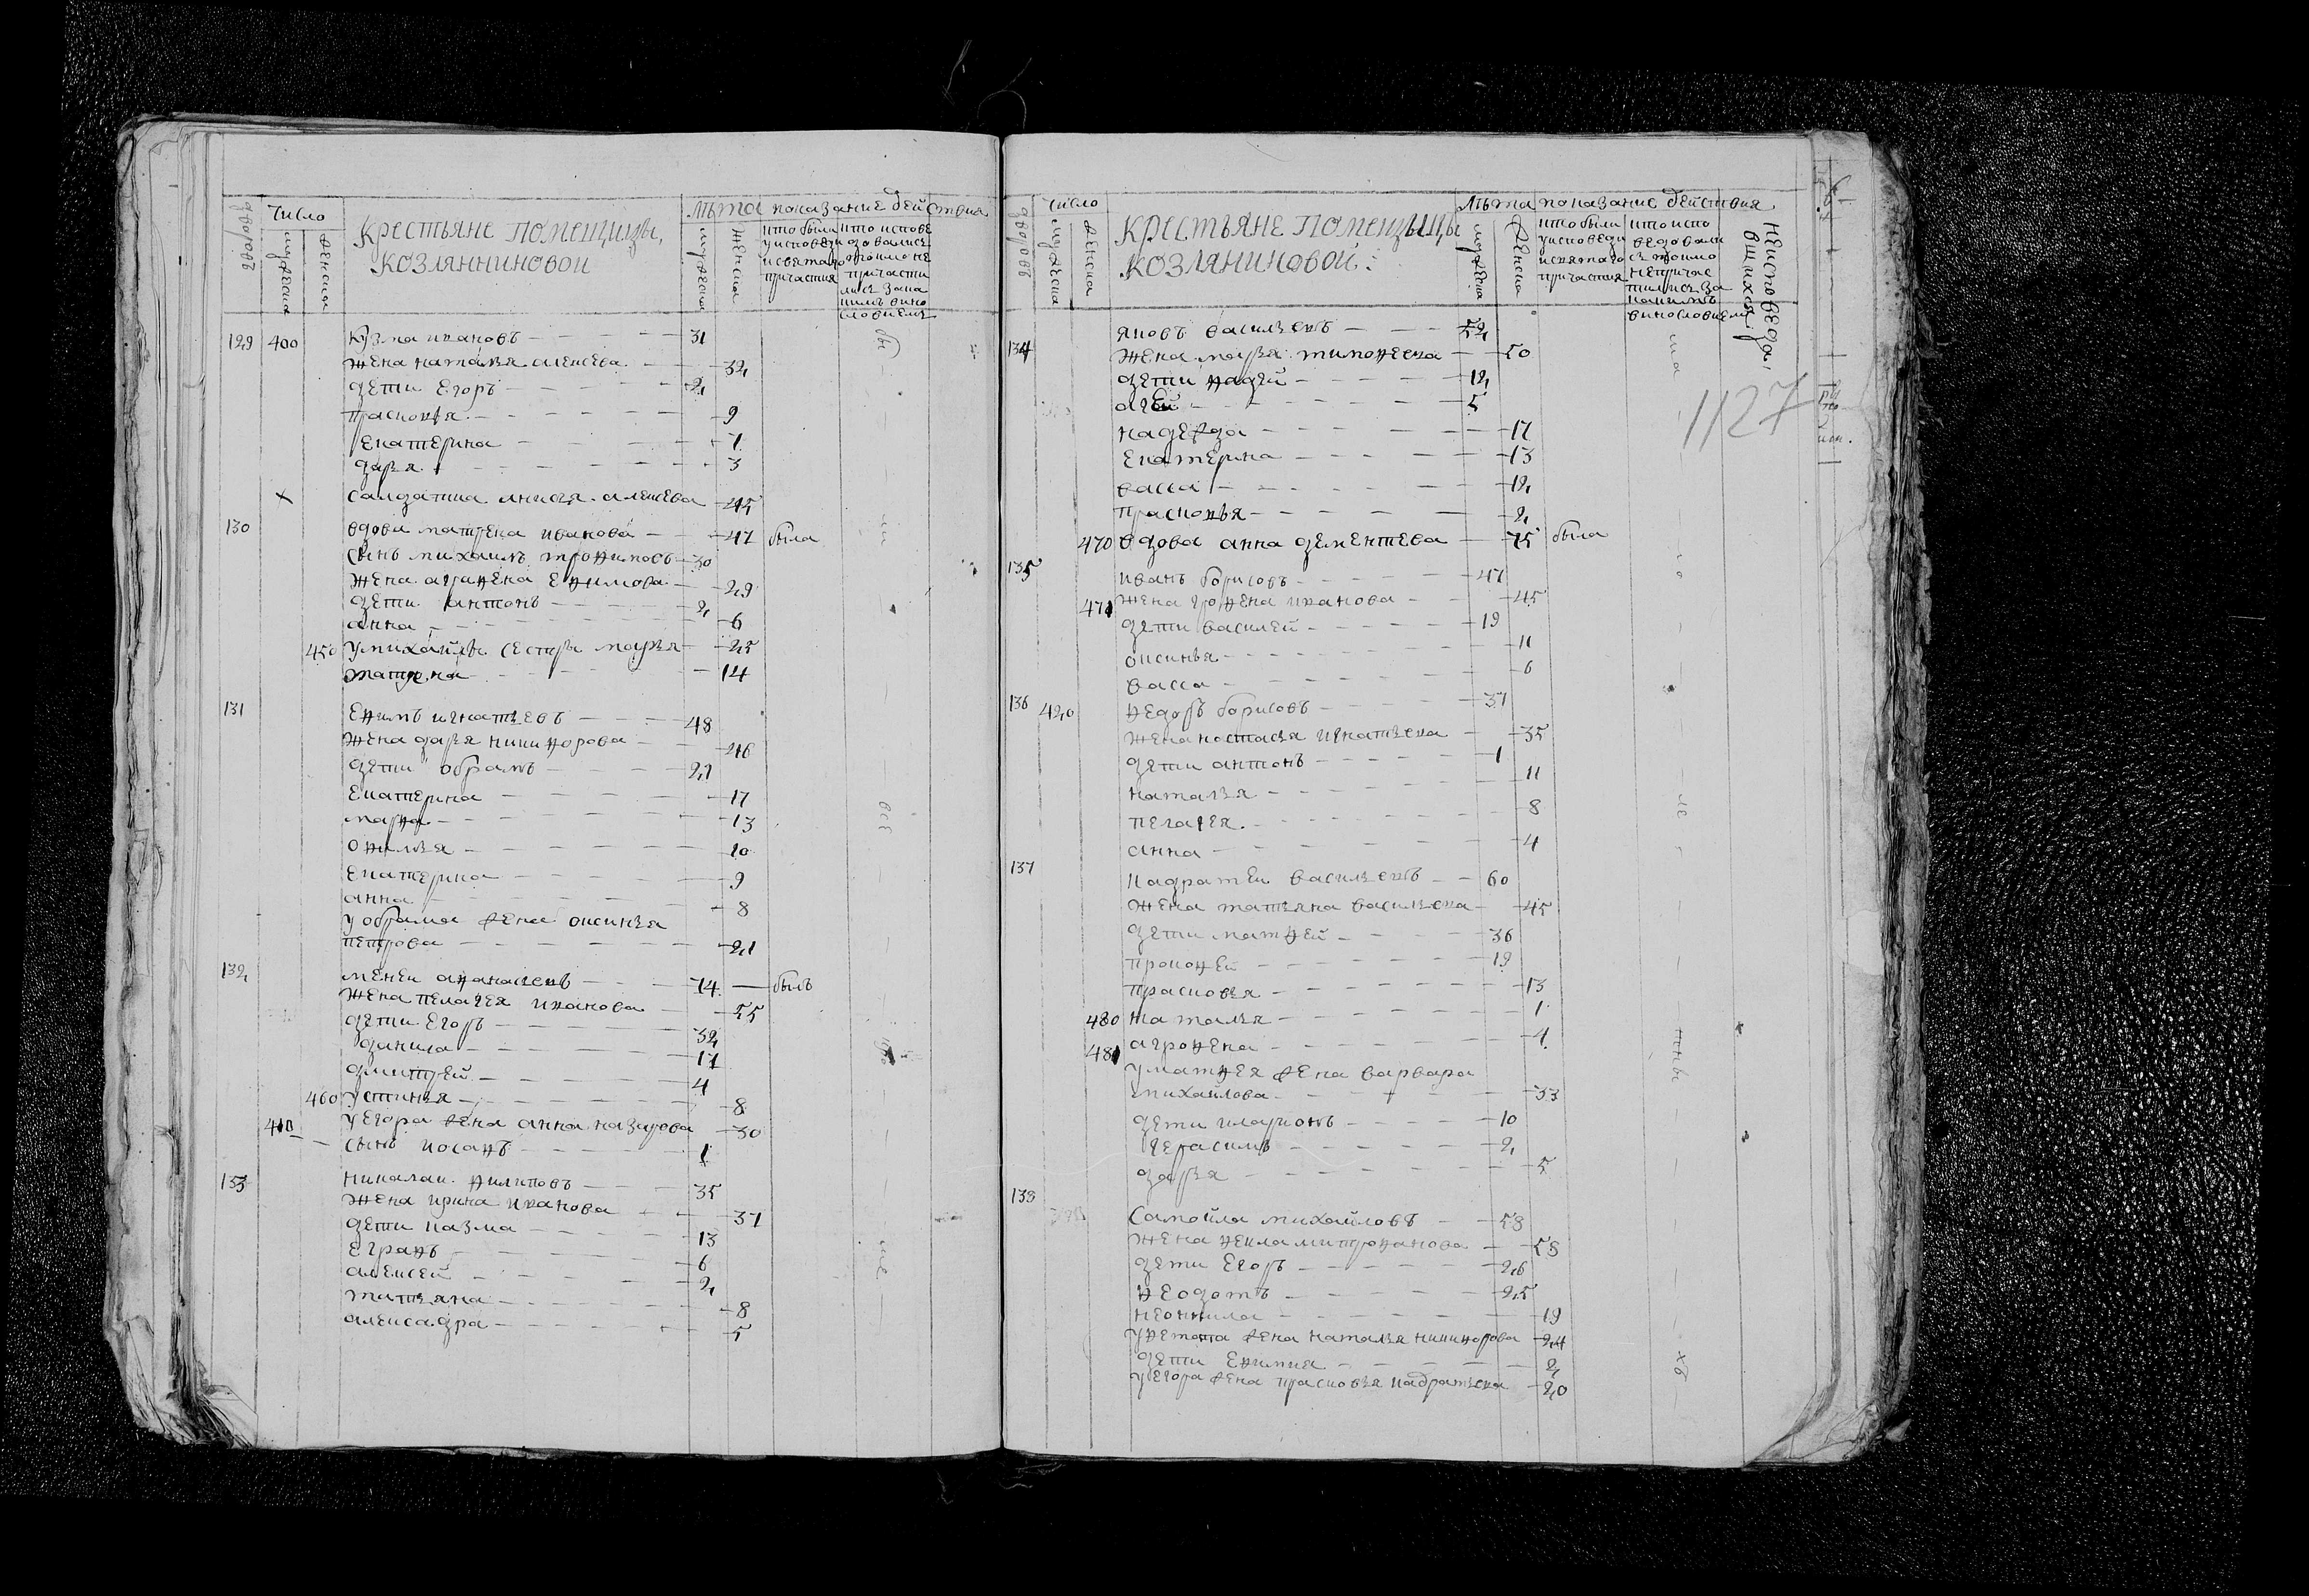 дворовъ Число мужеска женска Крестьяне помещицы, Козлянниновои Лѣта мужеска женска показание действия
кто были у исповеди и святаго причастия
кто исповедовались а токмо не причастились и за каким виносло­вием
129 400 Кузма ивановъ 31
жена наталья алексева 32
дети Егоръ 2
прасковья 9
Екатерина 7
дарья 3
салдатка анисья алексева 45
130 вдова матрена иванова 47 была
сынъ михаилъ трофимовъ 30
жена аграфена Ефимова 29
дети антонъ 2
анна 6
450 у михайлы сестры марья 25
матрена 14
131 Ефимъ игнатьевъ 48
жена дарья никифорова 46
дети абрамъ 21
Екатерина 17
марфа 13
офимья 10
Екатерина 9
анна 8
у абрама жена оксинья
петрова 21
132 михеи афанасьевъ 74 былъ
жена пелагея иванова 55
дети Егоръ 32
данила 17
дмитрей 4
460 устинья 8
410 у Егора жена анна назарова 30
сынъ иосафъ 1
133 николаи филиповъ 35
жена ирина иванова 37
дети казма 13
Еграфъ 6
алексей 2
татьяна 8
алексадра 5
дворовъ число мужеска женска Крестьяне помещицы Козляниновой: Лѣта мужеска женска показание действия
кто были у исповеди и святаго причастия
кто исповедовались а токмо не причастились за каким винословием
неисповедавшихся
1127
134 яковъ васильевъ 52
жена марья тимофеева 50
дети фадей 12
агей 5
надежда 17
Екатерина 13
васса 12
прасковья 2
470 вдова анна дементева 75 была
135 иванъ борисовъ 47
471 жена грофена иванова 45
дети василей 19
оксинья 11
васса 6
136 420 федоръ борисовъ 37
жена настасья игнатьева 35
дети антонъ 1
наталья 11
пелагея 8
анна 4
137 кадратеи васильевъ 60
жена татьяна васильева 45
дети матфей 36
прокофей 19
прасковья 13
480 наталья 1
481 агрофена
у матфея жена варвара
михайлова 33
дети иларионъ 10
герасимъ 2
дарья 5
138 самойла михайловъ 58
жена фекла митрофанова 58
дети Егоръ 26
федотъ 25
неонила 19
у федота жена наталья никифорова 24
дети Ефимия 2
у Егора жена прасковья кадратьева 20